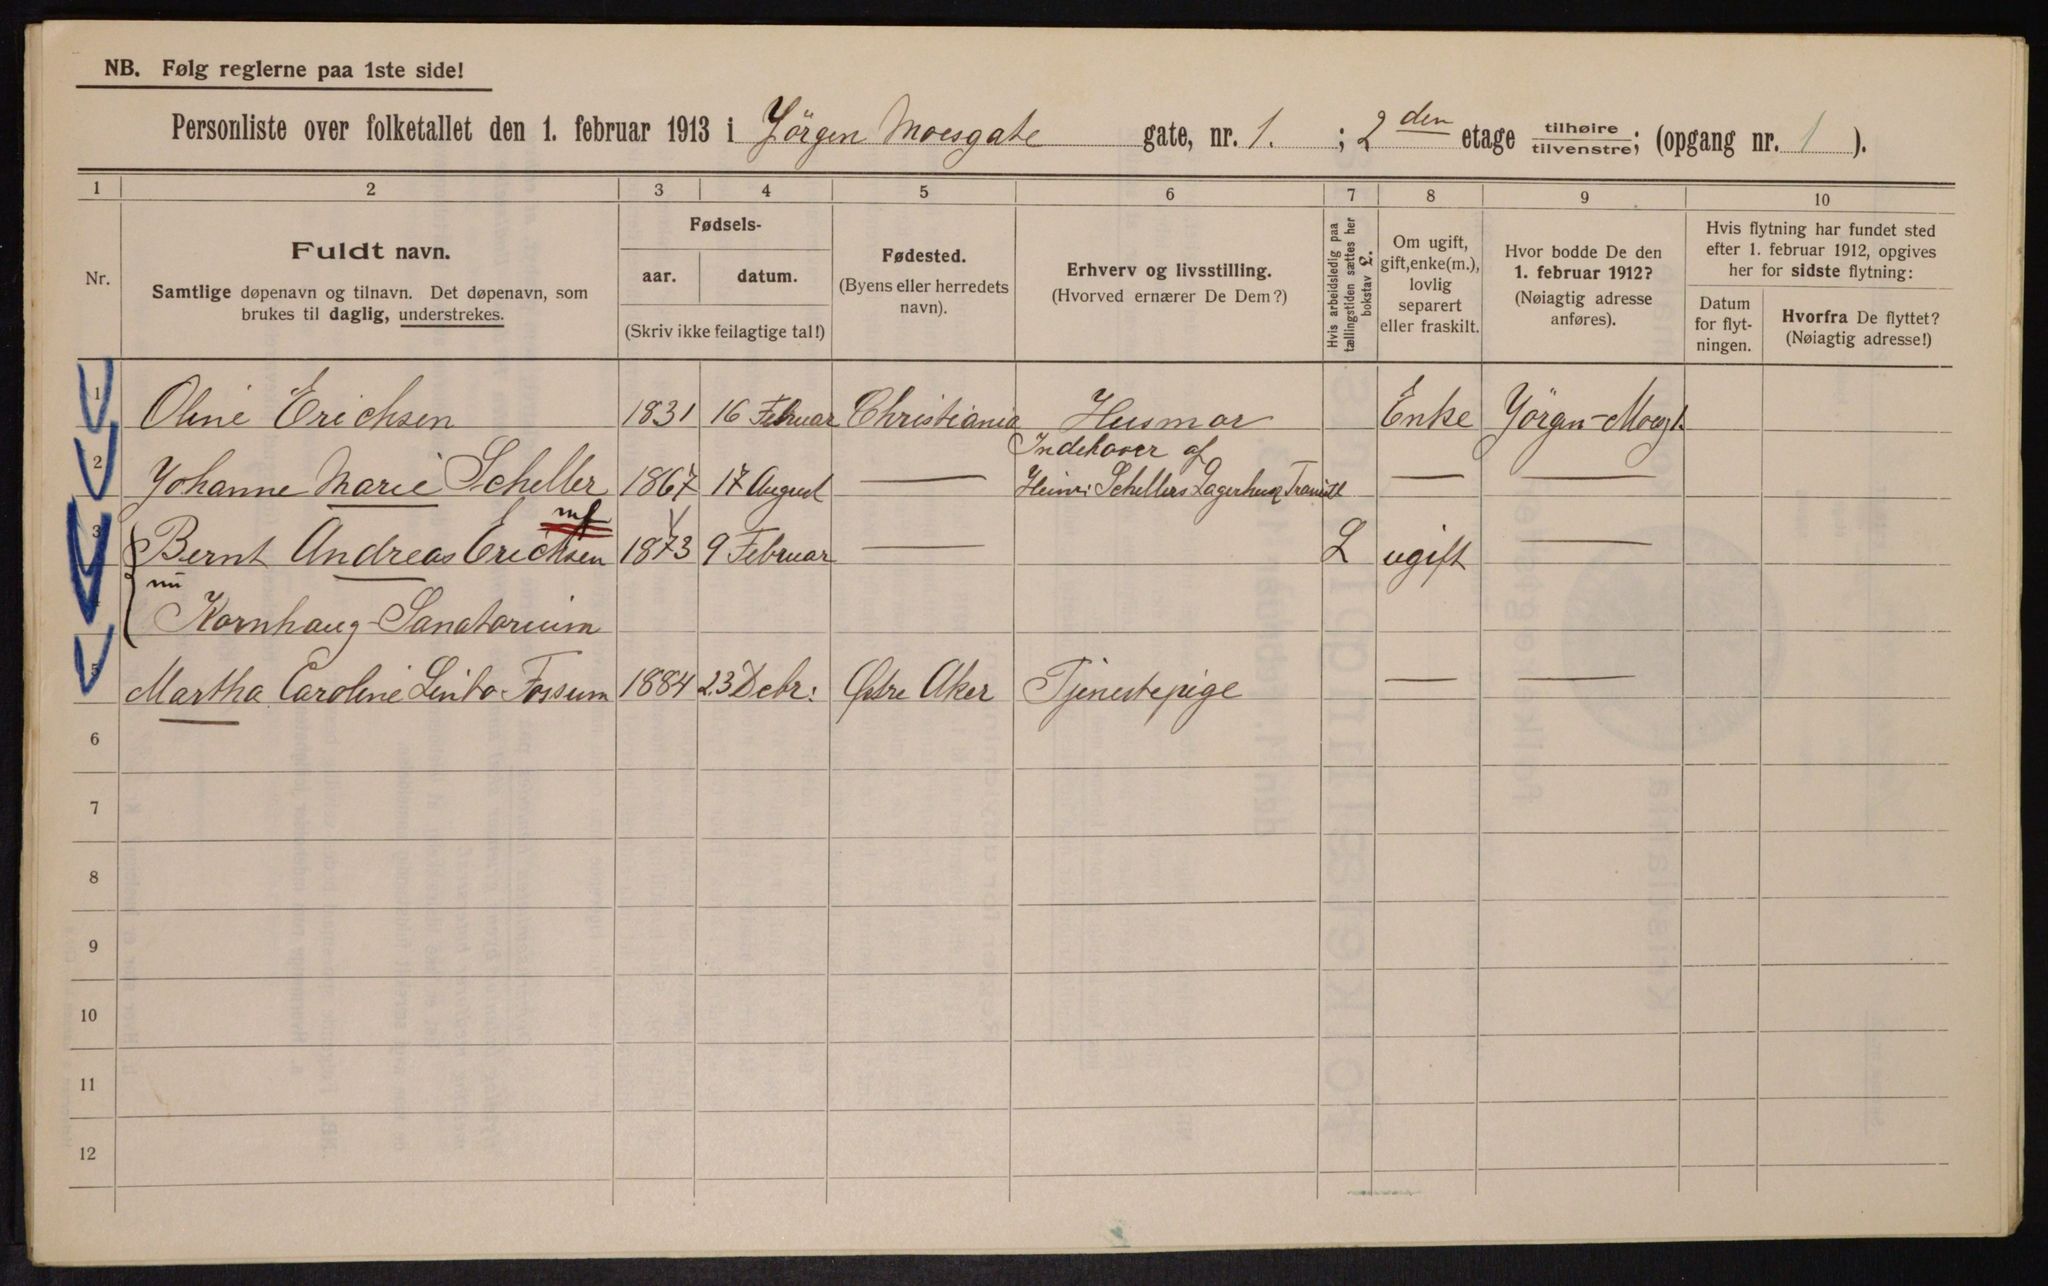 NB. Følg reglerne paa 1ste side!
Personliste over folketallet den 1. februar 1913 i Jörgen Moesgate gate, nr. 1. ; 2den etage tilhøire tilvenstre; (opgang nr. 1 ).
1 2 3 4 5 6 7 8 9 10
Nr.
Fuldt navn.
Samtlige døpenavn og tilnavn. Det døpenavn, som
brukes til daglig, understrekes.
Fødsels-
aar. datum.
(Skriv ikke feilagtige tal!)
Fødested.
(Byens eller herredets
navn).
Erhverv og livsstilling.
(Hvorved ernærer De Dem?)
Hvis arbeidsledig paa
tællingstiden sættes her
bokstav L.
Om ugift,
gift, enke(m.),
lovlig
separert
eller fraskilt.
Hvor bodde De den
1. februar 1912?
(Nøiagtig adresse
anføres).
Hvis flytning har fundet sted
efter 1. februar 1912, opgives
her for sidste flytning:
Datum
for flyt-
ningen.
Hvorfra De flyttet?
(Nøiagtig adresse!)
1 Oline Erichsen 1831 16 Februar Christiania Husmor Enke Jörgen-Moesg 1.
Indehaver af
2 Johanne Marie Scheller 1867 17 August — Heinr: Schellers Lagerhus — —
mf
3 Bernt Andreas Erichsen 1873 9 Februar — L ugift —
nu
4 Kornhaug-Sanatorium
5 Martha Caroline Fossum 1884 23 Debr: Østre Aker Tjenestepige — —
6
7
8
9
10
11
12